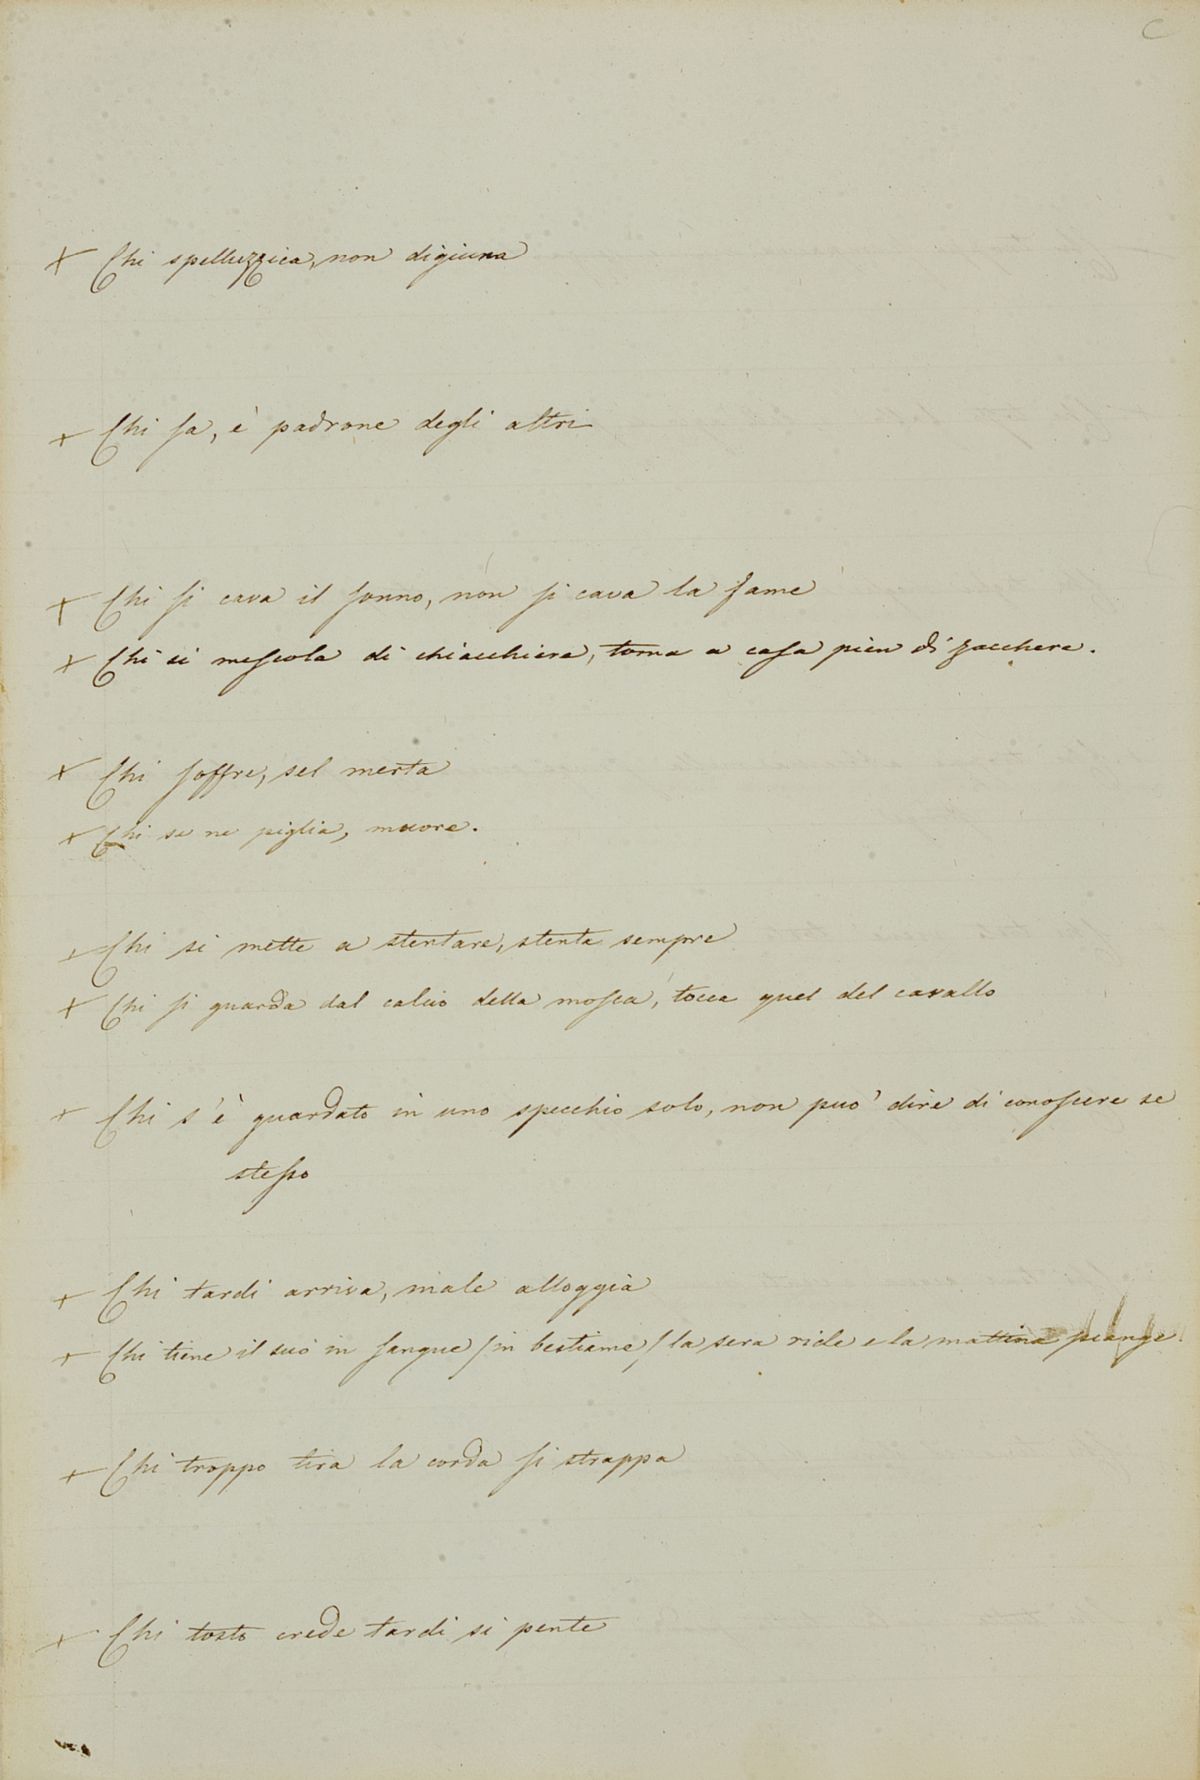 C
+ Chi spelluzzica, non digiuna
+ Chi sa, è padrone degli altri
+ Chi si cava il sonno, non si cava la fame
+ Chi si mescola di chiacchiere, torna a casa pien di zacchere.
+ Chi soffre, sel merta
+ Chi se ne piglia, muore.
+ Chi si mette a stentare, stenta sempre
+ Chi si guarda dal calcio della mosca, tocca quel del cavallo
+ Chi s'è guardato in uno specchio solo, non può dire di conoscere se
stesso
+ Chi tardi arriva, male alloggia
+ Chi tiene il suo in sangue /in bestiame,/ la sera ride e la mattina piange.
+ Chi troppo tira la corda si strappa
+ Chi tosto crede tardi si pente